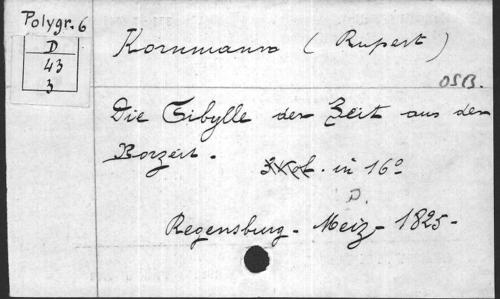 Polygr. 6
D
43
3
Kornmann (Rupert)
OSB.
Die Sibylle der Zeit aus der
Vorzeit.
in 16º
D.
Regensburg - Meiz - 1825 -